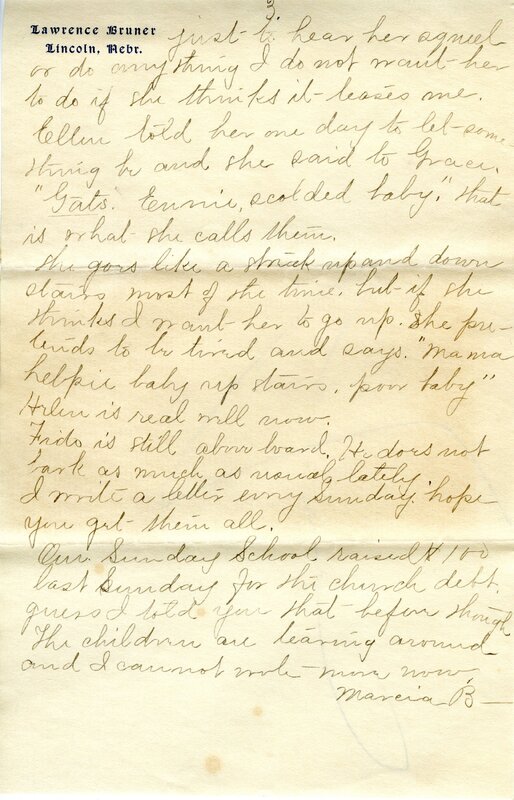 3
Lawrence Bruner
Lincoln, Nebr.
just to hear her squeel
or do anything I do not want her
to do if she thinks it teases me.
Ellen told her one day to let some-
thing be and she said to Grace,
"Gats. Ennie, scolded baby." that
is what she calls them.
She goes like a streak up and down
stairs most of the time. but if she
thinks I want her to go up. she pre-
tends to be tired and says. "Mama
helpie baby up stairs. poor baby"
Helen is real well now.
Fido is still above board. He does not
bark as much as usual lately.
I write a letter every Sunday. hope
you get them all.
Our Sunday School raised $100
last Sunday for the church debt.
guess I told you that before though
The children are tearing around
and I cannot write more now.
Marcia B—